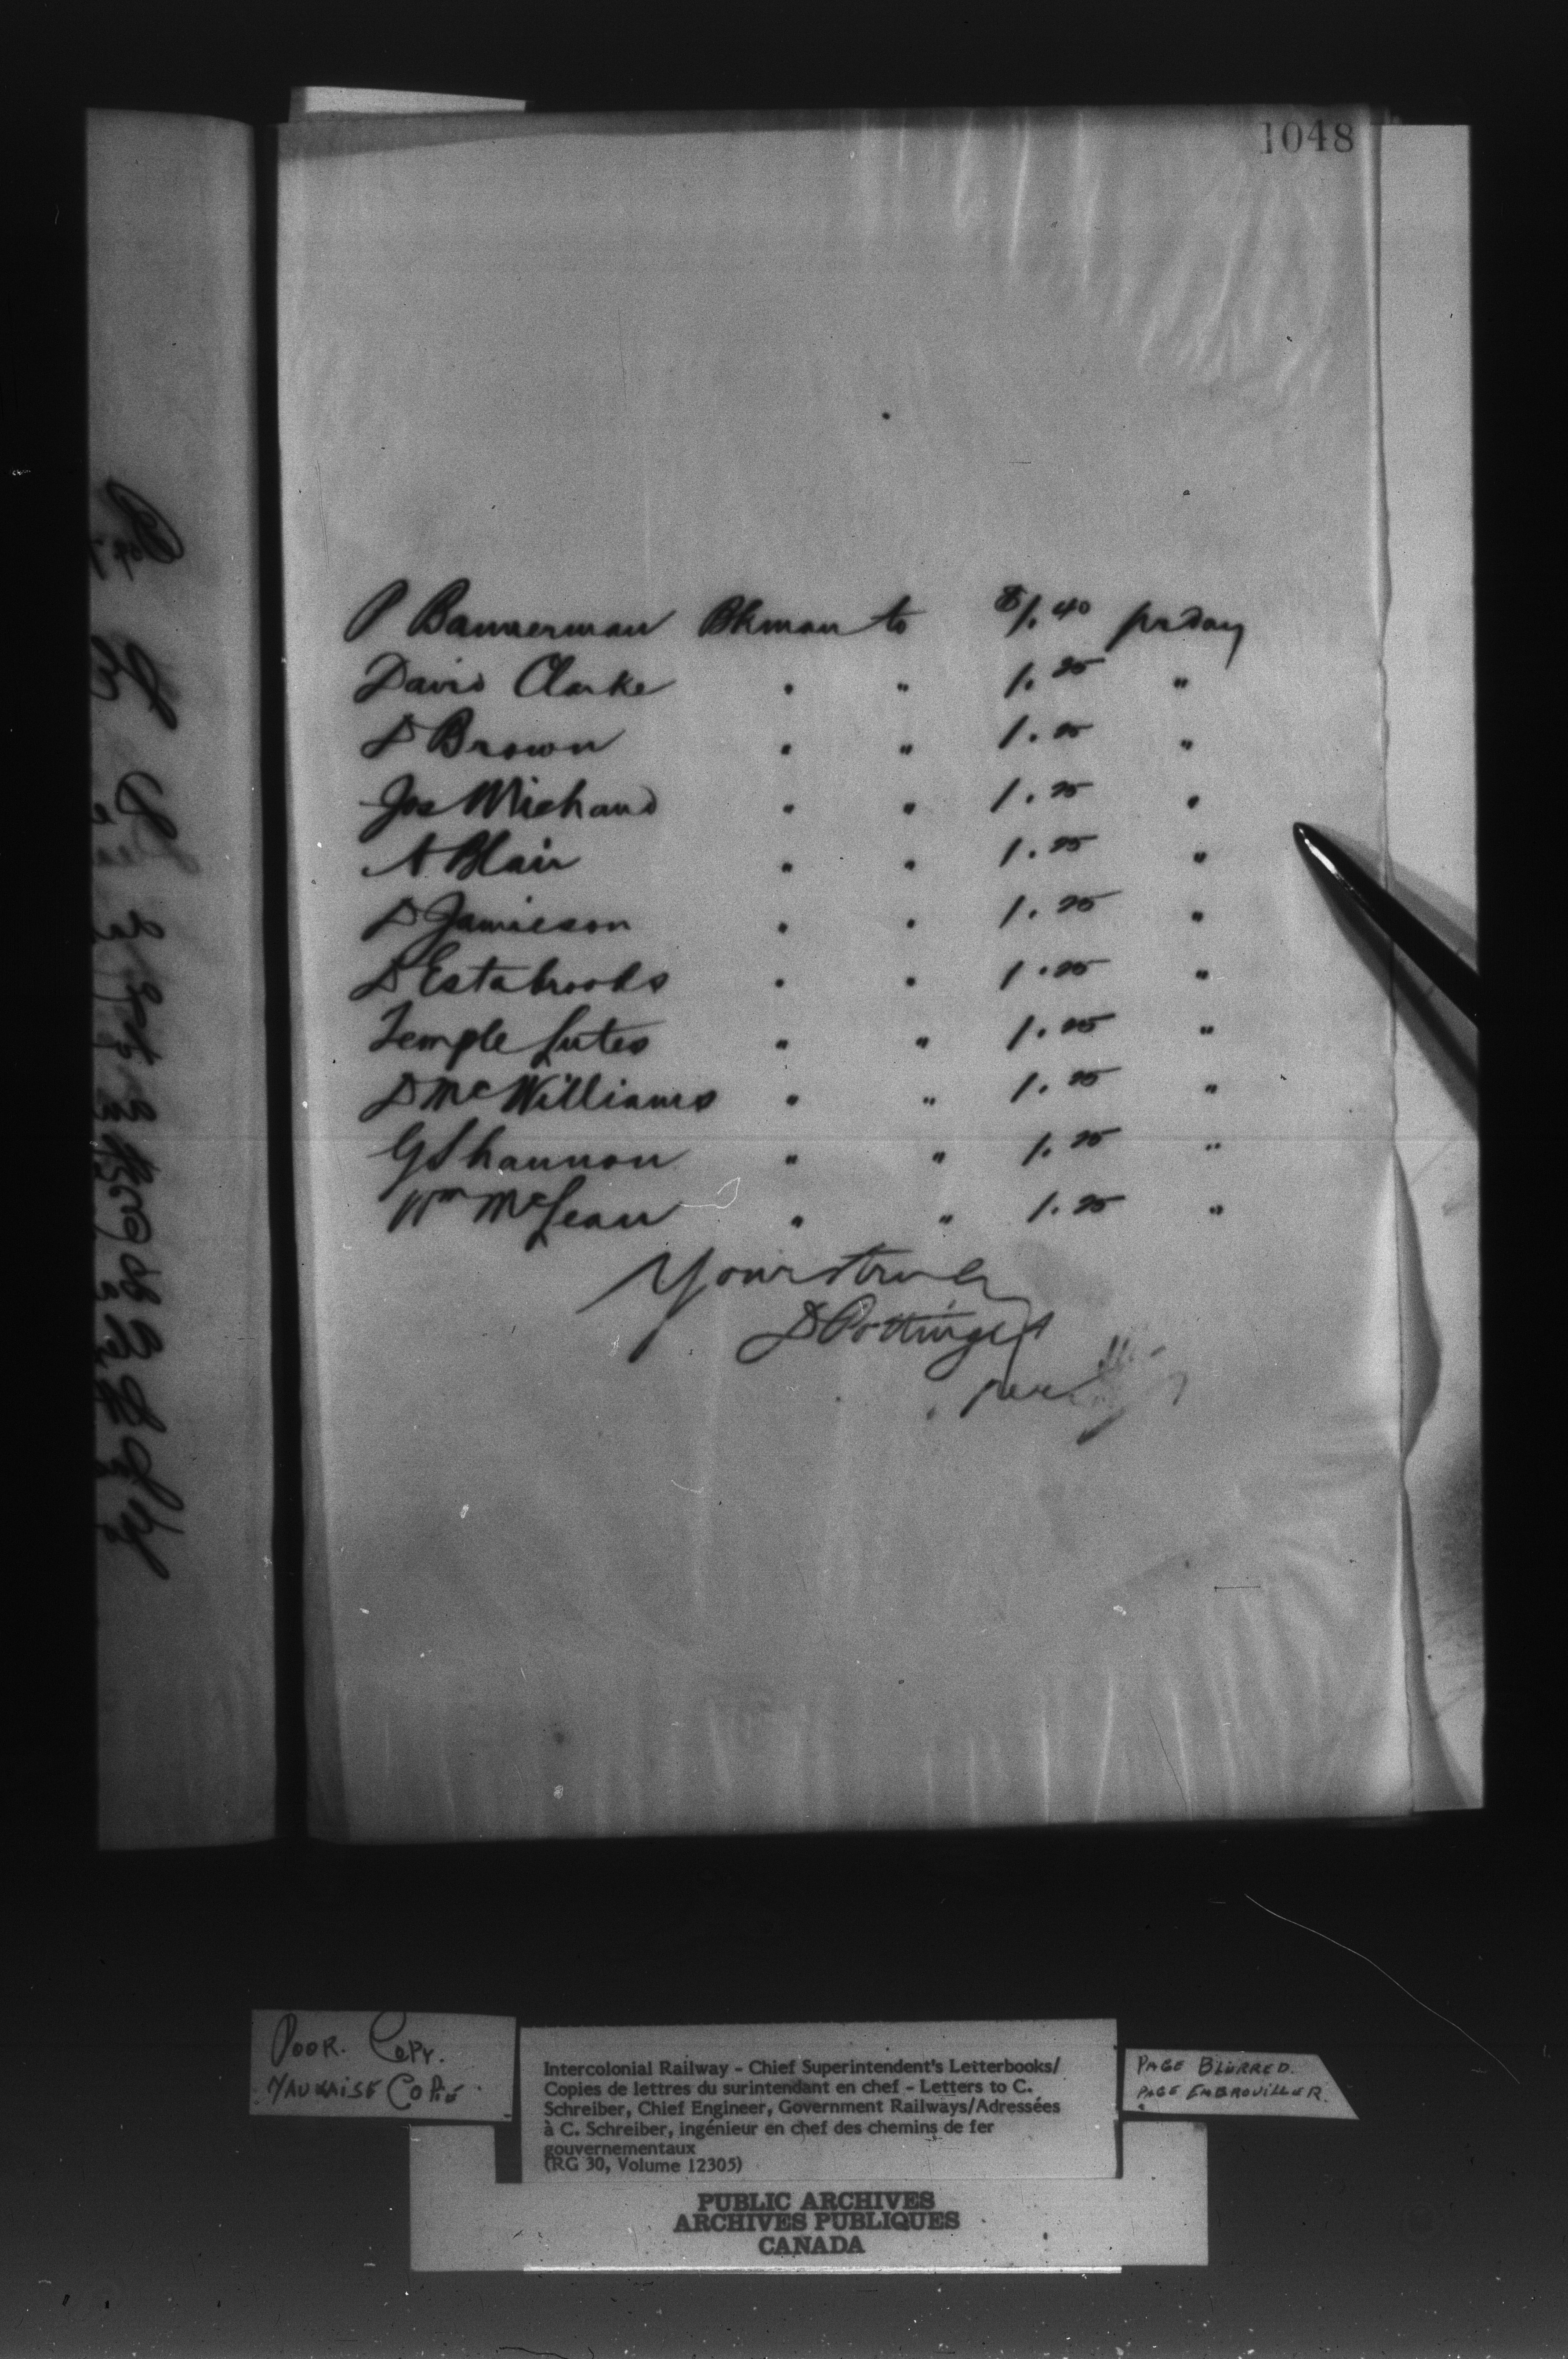 1048
P Bannerman Bkman to $1.40 pr day
David Clarke " " 1.25 "
D Brown " " 1.25 "
Jos Michaud " " 1.25 "
A Blair " " 1.25 "
D Jamieson " " 1.25 "
D Estabrooks " " 1.25 "
Temple Lutes " " 1.25 "
D McWilliams " " 1.25 "
G Shannon " " 1.25 "
Wm McLean " " 1.25 "
Yours truly
D Pottinger
per
POOR. COPY.
MAUVAISE COPIE
Intercolonial Railway - Chief Superintendent's Letterbooks/
Copies de lettres du surintendant en chef - Letters to C.
Schreiber, Chief Engineer, Government Railways/Adressées
à C. Schreiber, ingénieur en chef des chemins de fer
gouvernementaux
(RG 30, Volume 12305)
PAGE BLURRED.
PAGE EMBROUILLER.
PUBLIC ARCHIVES
ARCHIVES PUBLIQUES
CANADA